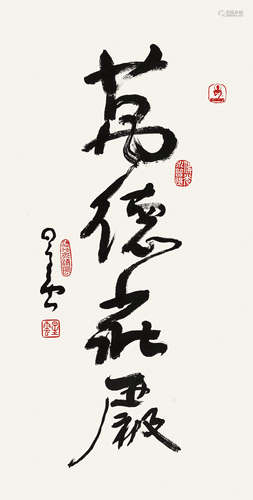 萬德莊嚴
星雲